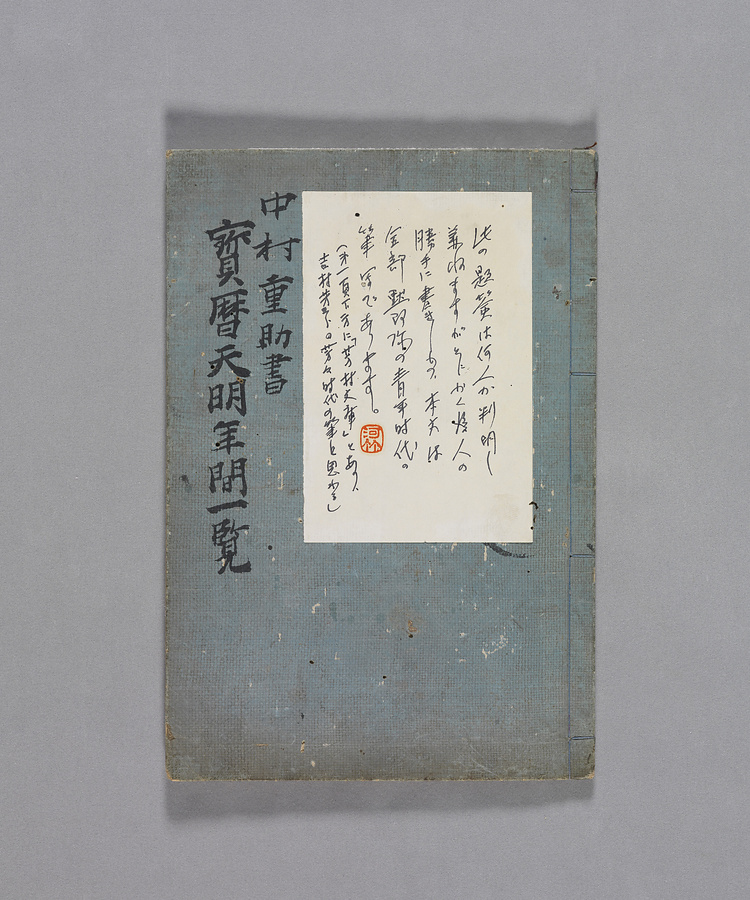 此の題簽は何人か判明し
兼ねますがとにかく後人の
勝手に書きしもの、本文は
全部黙阿弥の青年時代の
筆写であります。
河竹
(才一頁下方に「芳村文庫」とあり、
吉村芳 時代の筆と思
中村重助書
寶暦天明年間一覧